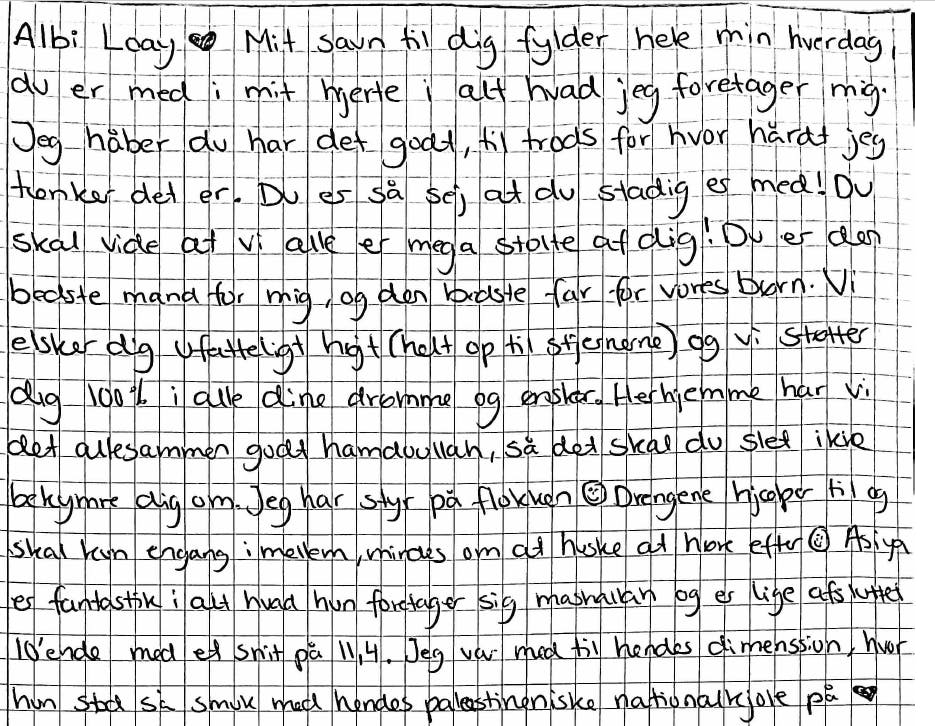 Albi Loay ♥ Mit savn til dig fylder hele min hverdag,
du er med i mit hjerte i alt hvad jeg foretager mig.
Jeg håber du har det godt, til trods for hvor hårdt jeg
tænker det er. Du er så sej at du stadig er med! Du
skal vide at vi alle er mega stolte af dig! Du er den
bedste mand for mig, og den bedste far for vores børn. Vi
elsker dig ufatteligt højt (helt op til stjernerne) og vi støtter
dig 100% i alle dine drømme og ønsker. Herhjemme har vi
det allesammen godt hamdoullah, så det skal du slet ikke
bekymre dig om. Jeg har styr på flokken ☺ Drengene hjælper til og
skal kun engang imellem, mindes om at huske at høre efter ☺ Asiya
er fantastik i alt hvad hun foretager sig mashallah og er lige afsluttet
10'ende med et snit på 11,4. Jeg var med til hendes dimenssion, hvor
hun stod så smuk med hendes palæstinensiske nationalkjole på ♥